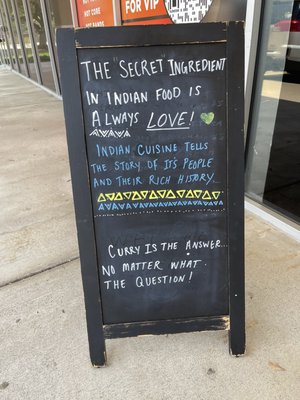 HOT CORE
FOR VIP
THE "SECRET INGREDIENT
IN INDIAN FOOD IS
ALWAYS LOVE!
INDIAN CUISINE TELLS
THE STORY OF IT'S PEOPLE
AND THEIR RICH HISTORY
CURRY IS THE ANSWER...
NO MATTER WHAT.
THE QUESTION!